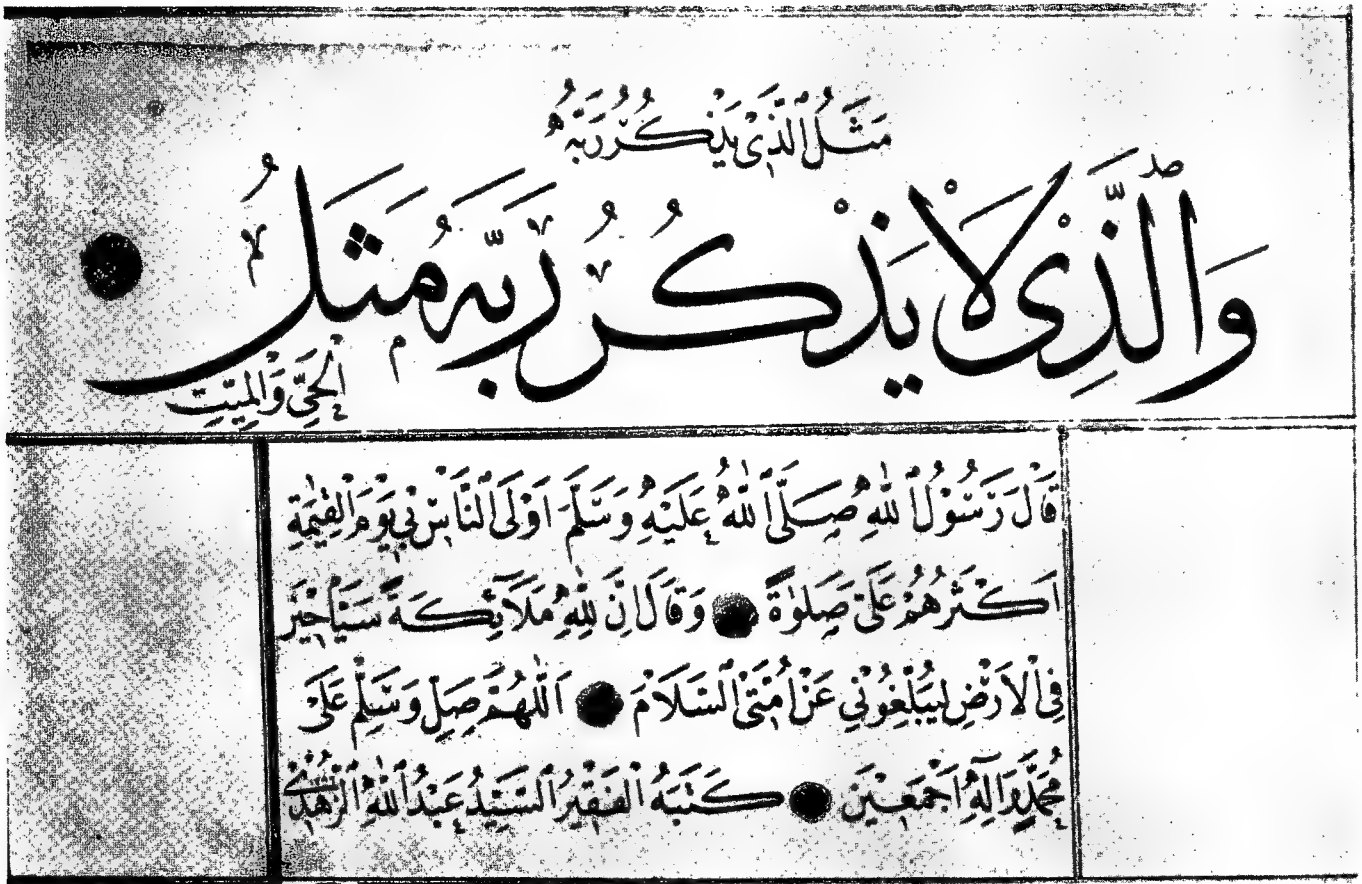 مَثَلُ الَّذِي يَذْكُرُ رَبَّهُ
وَالَّذِي لَا يَذْكُرُ رَبَّهُ مَثَلُ
الْحَيِّ وَالْمَيِّتِ
قَالَ رَسُولُ اللهِ صَلَّى اللهُ عَلَيْهِ وَسَلَّمَ اَوْلَى النَّاسِ بِي يَوْمَ الْقِيٰمَةِ
اَكْثَرُهُمْ عَلَيَّ صَلٰوةً وَقَالَ اِنَّ لِلّٰهِ مَلَائِكَةً سَيَّاحِينَ
فِي الْاَرْضِ لِيُبَلِّغُونِي عَنْ اُمَّتِي السَّلَامَ اَللّٰهُمَّ صَلِّ وَسَلِّمْ عَلَى
مُحَمَّدٍ وَاٰلِهِ اَجْمَعِينَ كَتَبَهُ الْفَقِيرُ السَّيِّدُ عَبْدُ اللهِ الزُّهْدِي